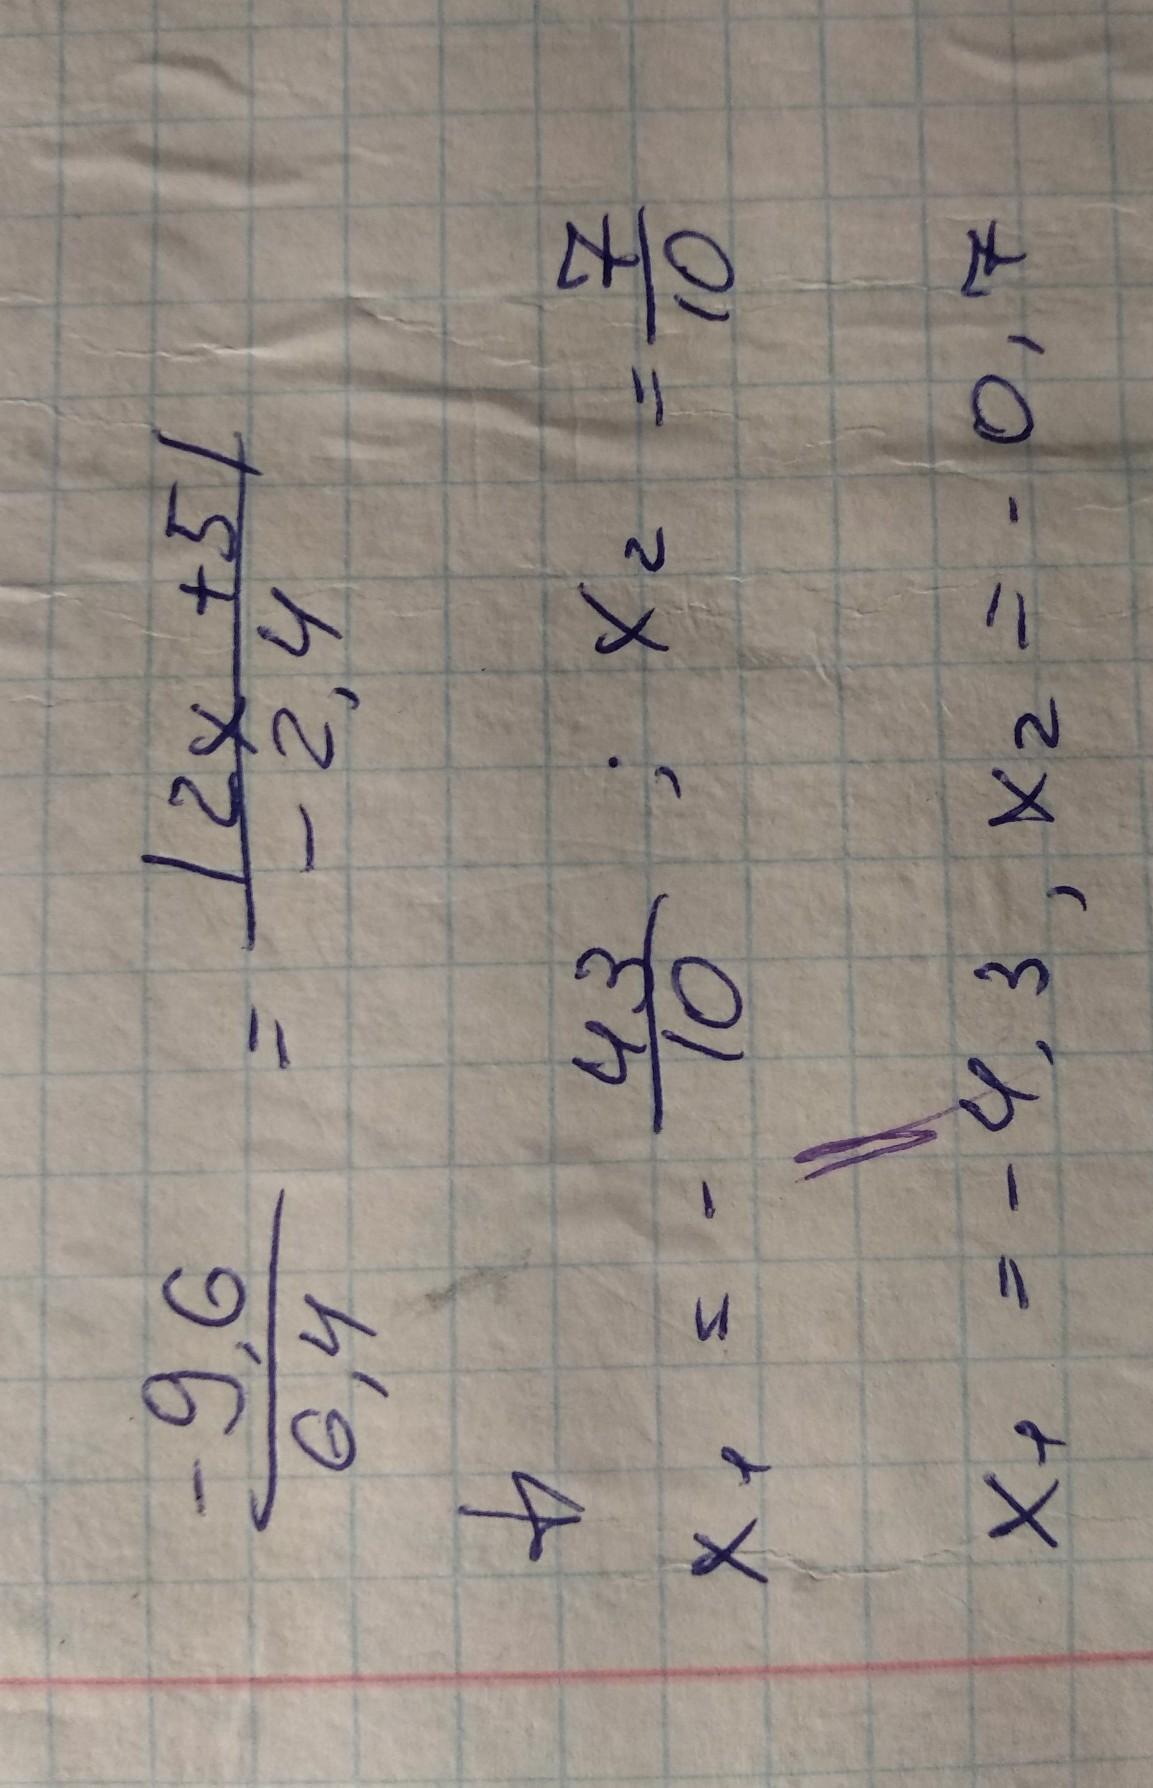 \frac{-9,6}{6,4} = \frac{|2x+5|}{-2,4}
↓
x_1 = -\frac{43}{10} ; x_2 = \frac{7}{10}
x_1 = -4,3, x_2 = -0,7